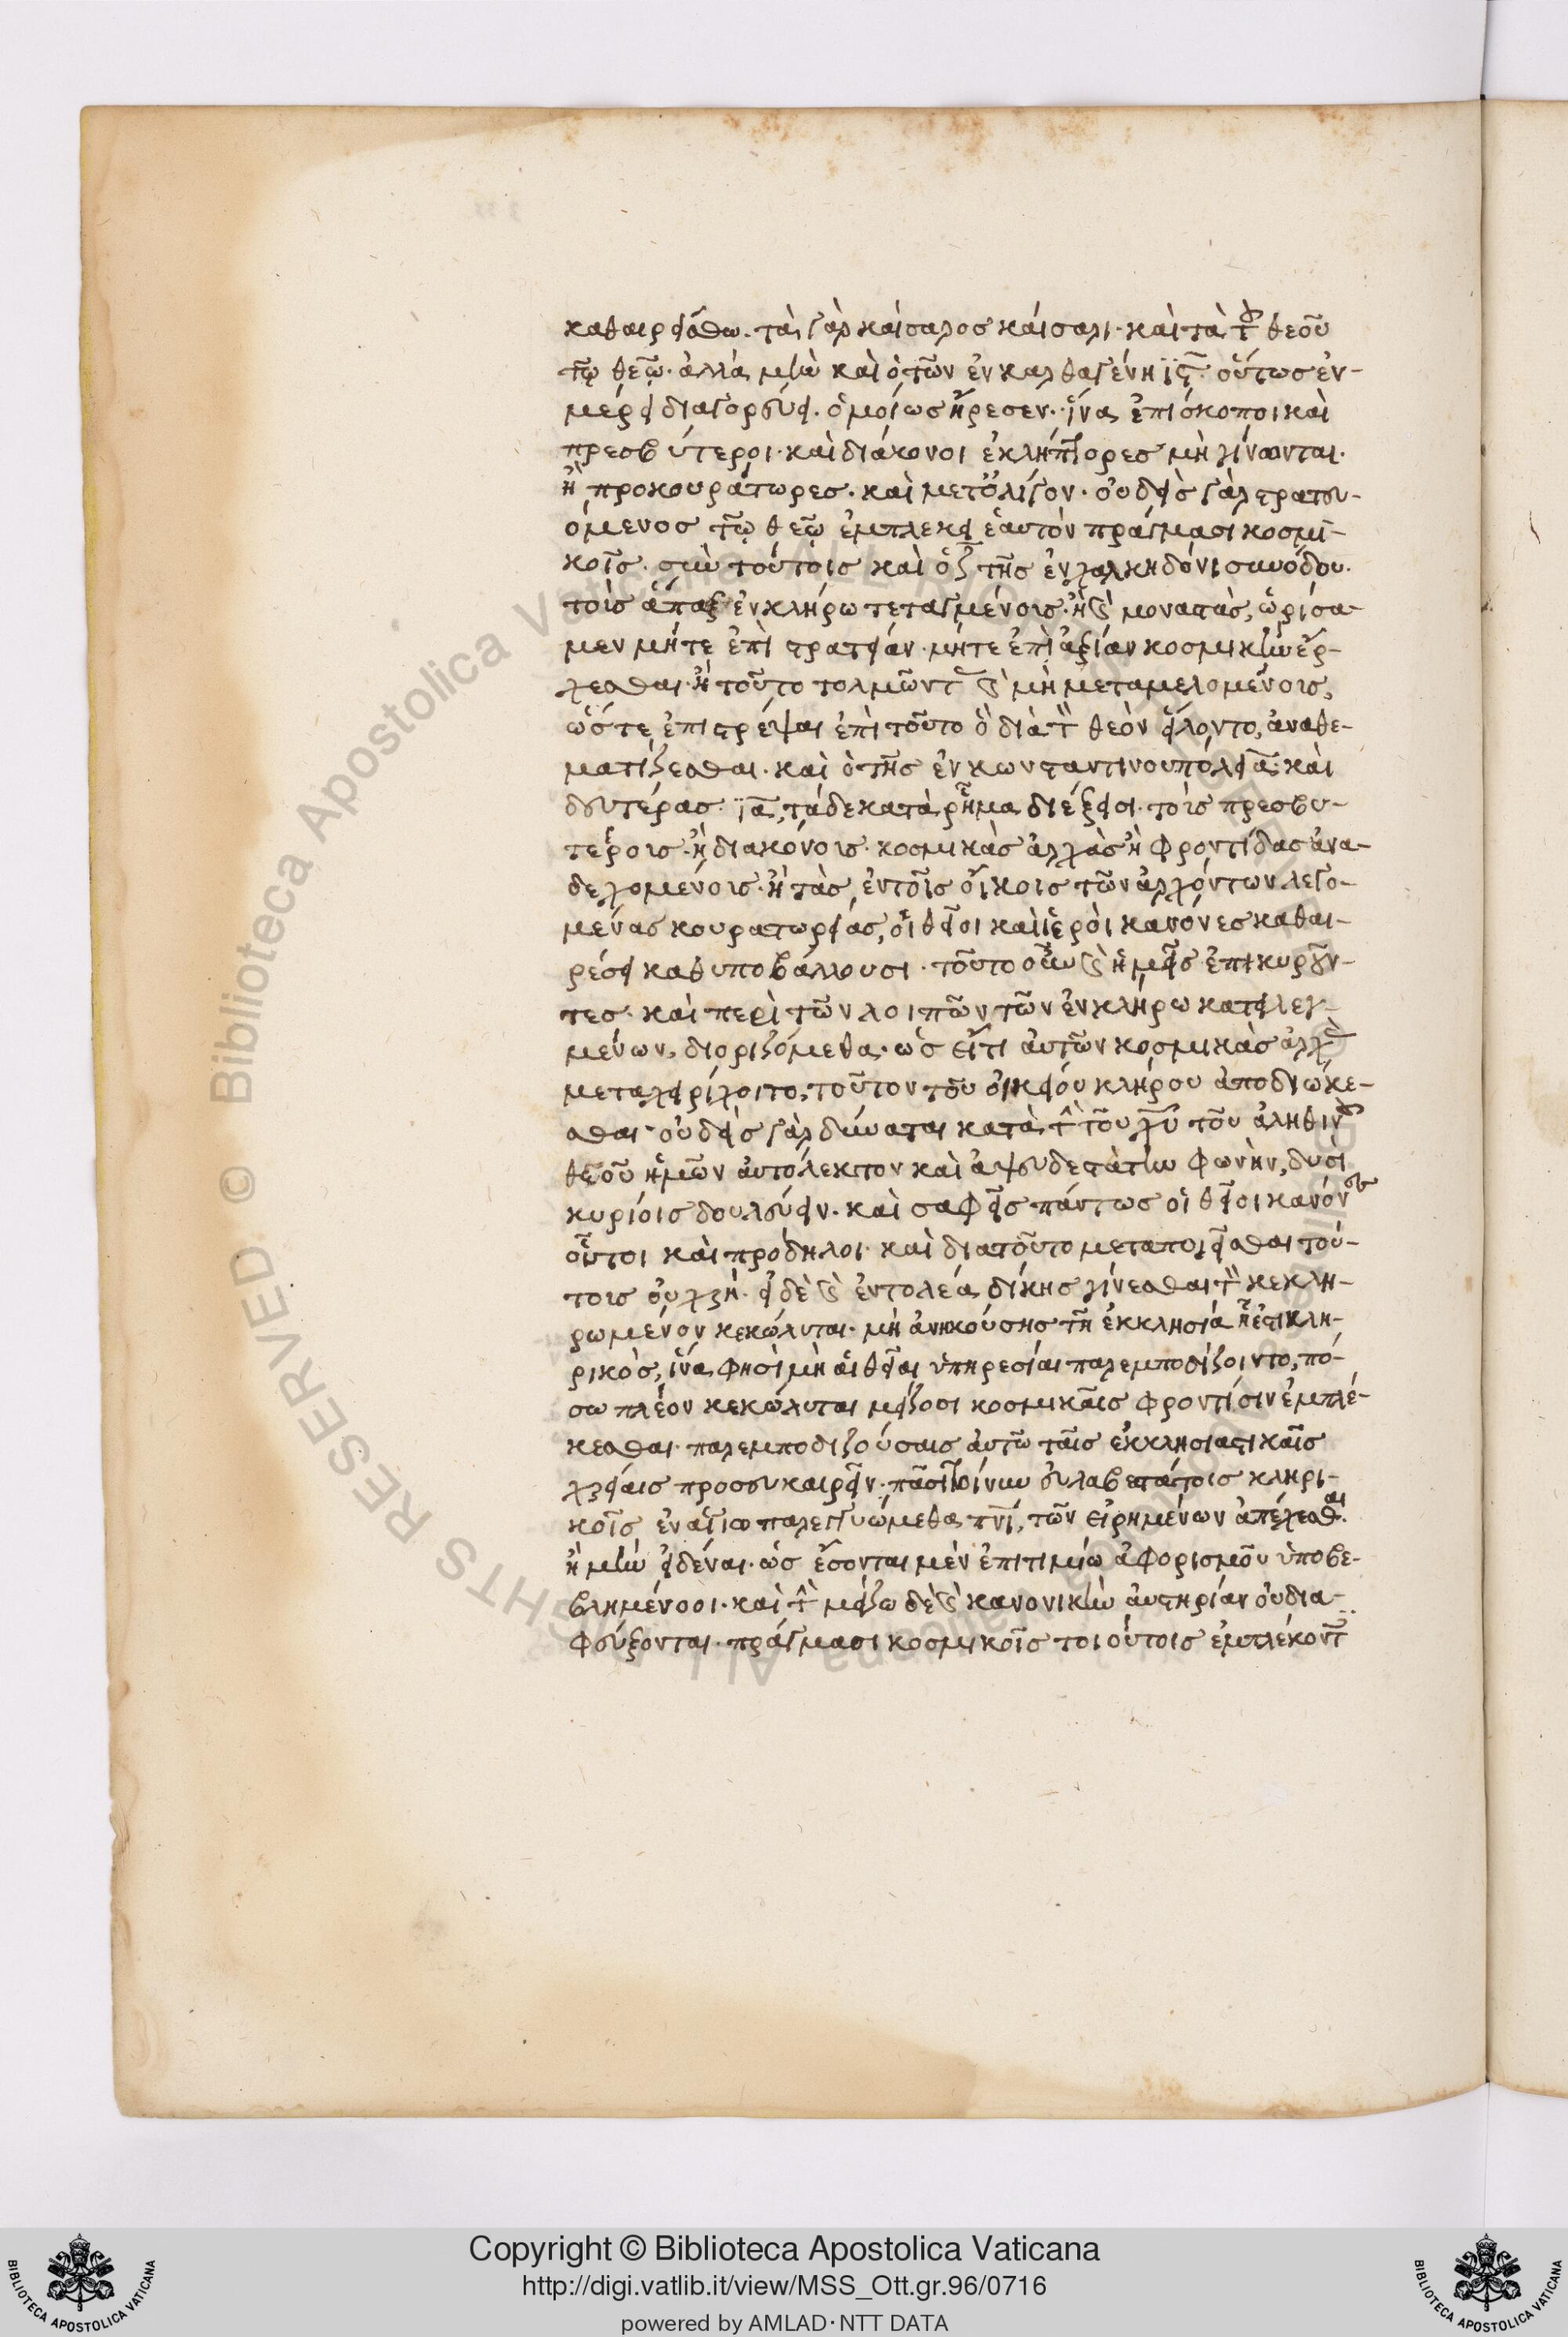 καθαιρείσθω. τὰ γὰρ καίσαρος καίσαρι. καὶ τὰ τοῦ θεοῦ
τῷ θεῷ. ἀλλὰ μὴν καὶ ὁ τῶν ἐν καρθαγένη ιϛ. οὕτως ἐν-
μέρει διαγορεύει. ὁμοίως ἤρεσεν. ἵνα ἐπίσκοποι καὶ
πρεσβύτεροι. καὶ διάκονοι ἐκλήπτορες μὴ γίνωνται.
ἢ προκουράτωρες. καὶ μετ' ὀλίγον. οὐδεὶς γὰρ στρατευ-
όμενος τῷ θεῷ ἐμπλέκει ἑαυτὸν πράγμασι κοσμι-
κοῖς. σὺν τούτοις καὶ ὁ ζ τῆς ἐν χαλκηδόνι συνόδου.
τοὺς ἅπαξ ἐν κλήρω τεταγμένους. ἢ καὶ μοναστὰς, ὡρίσα-
μεν μήτε ἐπὶ στρατείαν. μήτε ἐπὶ ἀξίαν κοσμικὴν ἔρ-
χεσθαι. ἢ τοῦτο τολμῶντας καὶ μὴ μεταμελομένοις,
ὥστε ἐπιστρέψαι ἐπὶ τοῦτο ὃ διὰ τὸν θεὸν εἵλοντο, ἀναθε-
ματίζεσθαι. καὶ ὁ τῆς ἐν κωνσταντινουπόλει α. καὶ
δευτέρας ια, τάδε κατὰ ῥῆμα διέξεισι. τοὺς πρεσβυ-
τέροις. ἢ διακόνοις. κοσμικὰς ἀρχὰς ἢ φροντίδας ἀνα-
δεχομένοις. ἢ τὰς ἐν τοῖς οἴκοις τῶν ἀρχόντων λεγο-
μένας κουρατωρείας, οἱ θεῖοι καὶ ἱεροὶ κανόνες καθαι-
ρέσει καθυποβάλλουσι. τοῦτο οὖν καὶ ἡμεῖς ἐπικυροῦν-
τες. καὶ περὶ τῶν λοιπῶν τῶν ἐν κλήρω κατειλεγ-
μένων, διοριζόμεθα. ὡς εἴ τι αὐτῶν κοσμικὰς ἀρχὰς
μεταχειρίχοιτο, τοῦτον τοῦ οἰκείου κλήρου ἀποδιώκε-
σθαι. οὐδεὶς γὰρ δύναται κατὰ τὴν τοῦ χυ τοῦ ἀληθινοῦ
θεοῦ ἡμῶν αὐτόλεκτον καὶ ἀψευδεστάτην φωνὴν, δυσὶ
κυρίοις δουλεύειν. καὶ σαφεῖς πάντως οἱ θεῖοι κανόνες
οὗτοι καὶ πρόδηλοι. καὶ διατοῦτο μεταποιεῖσθαι τού-
τοις οὐ χρή. εἰ δὲ καὶ ἐντολέα δίκης γίνεσθαι τὸν κεκλη-
ρωμένον κεκώλυται. μὴ ἀνηκούσης τῆ ἐκκλησία ἧ ἐστι κλη-
ρικὸς, ἵνα φησὶ μὴ αἱ θεῖαι ὑπηρεσίαι παρεμποδίζοιντο, πό-
σω πλέον κεκώλυται μείζοσι κοσμικαῖς φροντίσιν ἐμπλέ-
κεσθαι. παρεμποδιζούσαις αὐτῶ ταῖς ἐκκλησιαστικαῖς
χρείαις προσευκαιρεῖν. πᾶσι τοίνυν εὐλαβεστάτοις κληρι-
κοῖς ἐναγίω παρεγγυώμεθα πνί, τῶν εἰρημένων ἀπέχεσθαι.
ἢ μὴν εἰδέναι. ὡς ἔσονται μὲν ἐπιτιμίω ἀφορισμοῦ ὑποβε-
βλημένοοι. καὶ τὴν μείζω δὲ καὶ κανονικὴν αὐστηρίαν οὐ δια-
φεύξονται. πράγμασι κοσμικοῖς τοιούτοις ἐμπλέκοντ
Copyright © Biblioteca Apostolica Vaticana
http://digi.vatlib.it/view/MSS_Ott.gr.96/0716
powered by AMLAD·NTT DATA